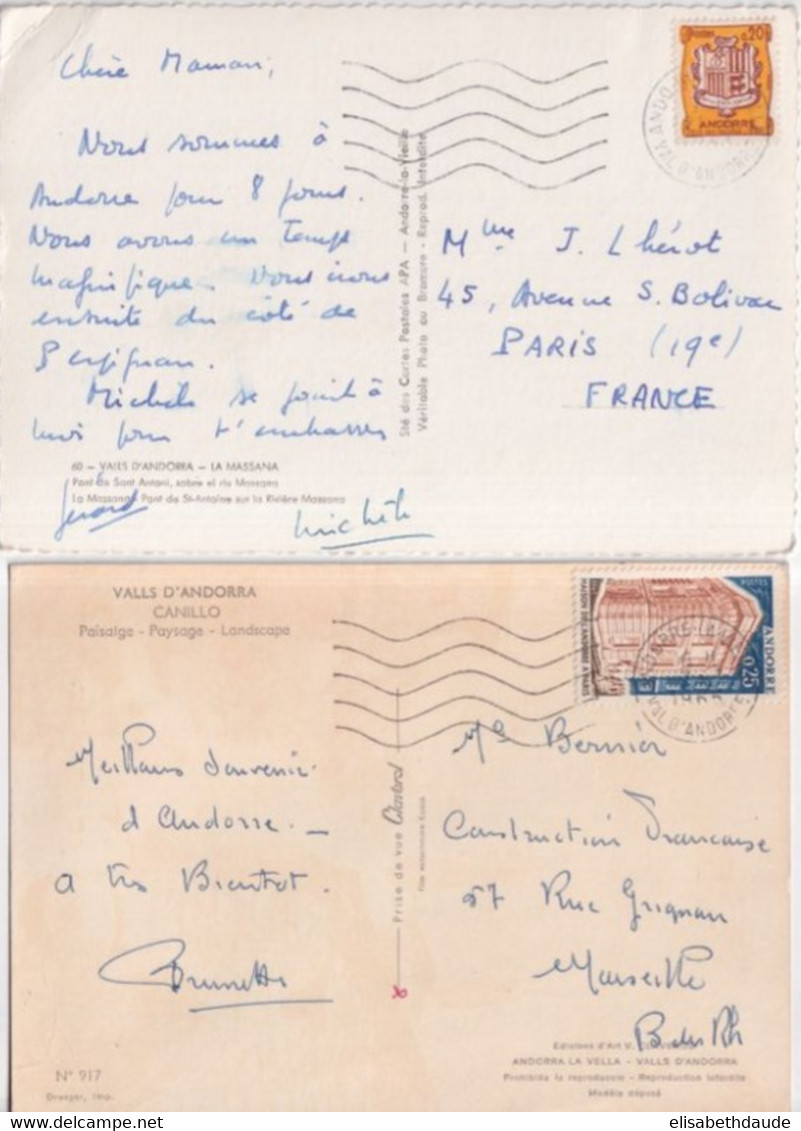 Chère Maman,
Nous sommes à
Andorre pour 8 jours.
Nous avons un temps
magnifique. Nous irons
ensuite du côté de
Perpignan.
Michèle se joint à
moi pour t'embrasser
Gérard
Michèle
60 — VALLS D'ANDORRA — LA MASSANA
Pont de Sant Antoni, sobre el riu Massana
La Massana - Pont de St-Antoine sur la Rivière Massana
Sté des Cartes Postales APA — Andorre-la-Vieille
Véritable Photo au Bromure - Reprod. Interdite
Postes 0,20
ANDORRE
VAL D'ANDORRE
Mme J. Lhérot
45, Avenue S. Bolivar
PARIS (19e)
FRANCE
VALLS D'ANDORRA
CANILLO
Paisatge - Paysage - Landscape
Meilleurs souvenirs
d'Andorre. —
A très Bientôt.
Prise de vue Claverol
POSTES
ANDORRE
0,25
MAISON DES ANDORRE A PARIS
VAL D'ANDORRE
Mr Bernier
Construction Francaise
57 Rue Grignan
Marseille
B du Rh
Edicions d'Art V.
ANDORRA LA VELLA - VALLS D'ANDORRA
Prohibida la reproduccio - Reproduction interdite
Modèle déposé
N° 917
Draeger, Imp.
elisabethdaude